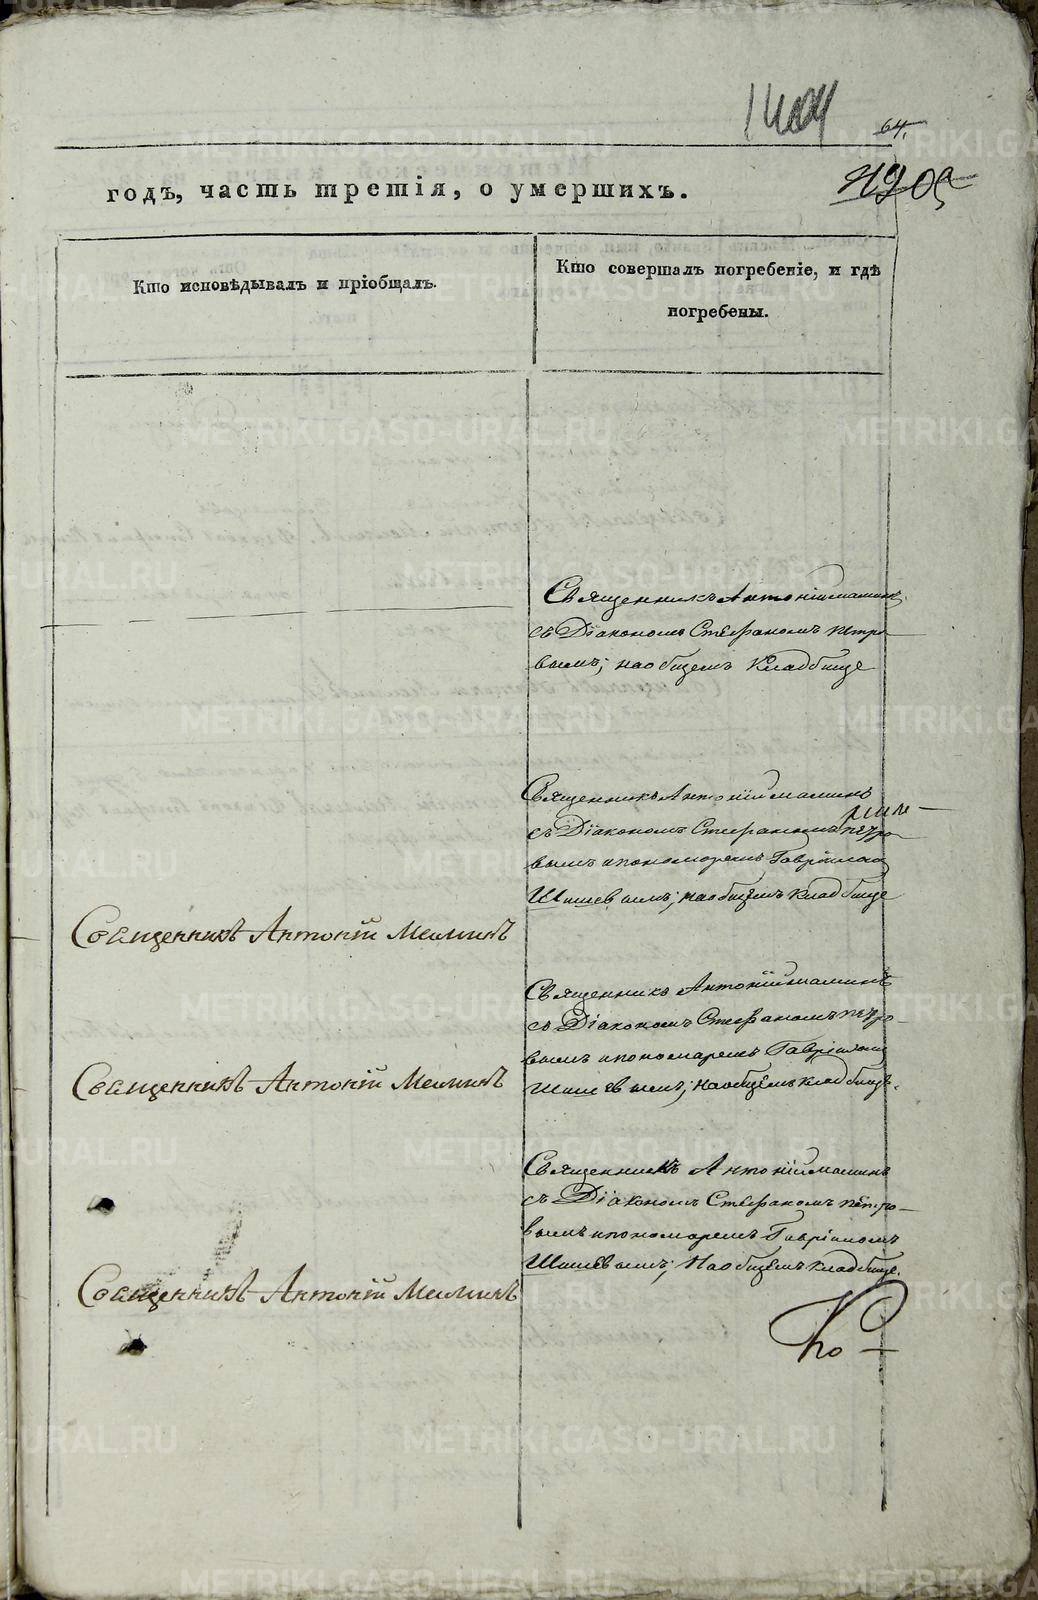 64.
годъ, часть третія, о умершихъ.
Кто исповѣдывалъ и пріобщалъ.
Кто совершалъ погребеніе, и гдѣ
погребены.
Священникъ Антоній Маминъ
съ Діакономъ Стефаномъ Петро
вымъ; на общемъ Кладбище
Священникъ Антоній Маминъ
съ Діакономъ Стефаномъ Петро
вымъ и пономоремъ Гавріиломъ
Шишевымъ; на общемъ кладбище
Священникъ Антоній Маминъ
Священникъ Антоній Маминъ
съ Діакономъ Стефаномъ Петро
вымъ и пономаремъ Гавріиломъ
Шишевымъ; на общемъ кладбищѣ.
Священникъ Антоній Маминъ
Священникъ Антоній Маминъ
съ Діакономъ Стефаномъ Петро
вымъ и пономоремъ Гавріиломъ
Шишевымъ; На общемъ кладбище.
Священникъ Антоній Маминъ
METRIKI.GASO-URAL.RU